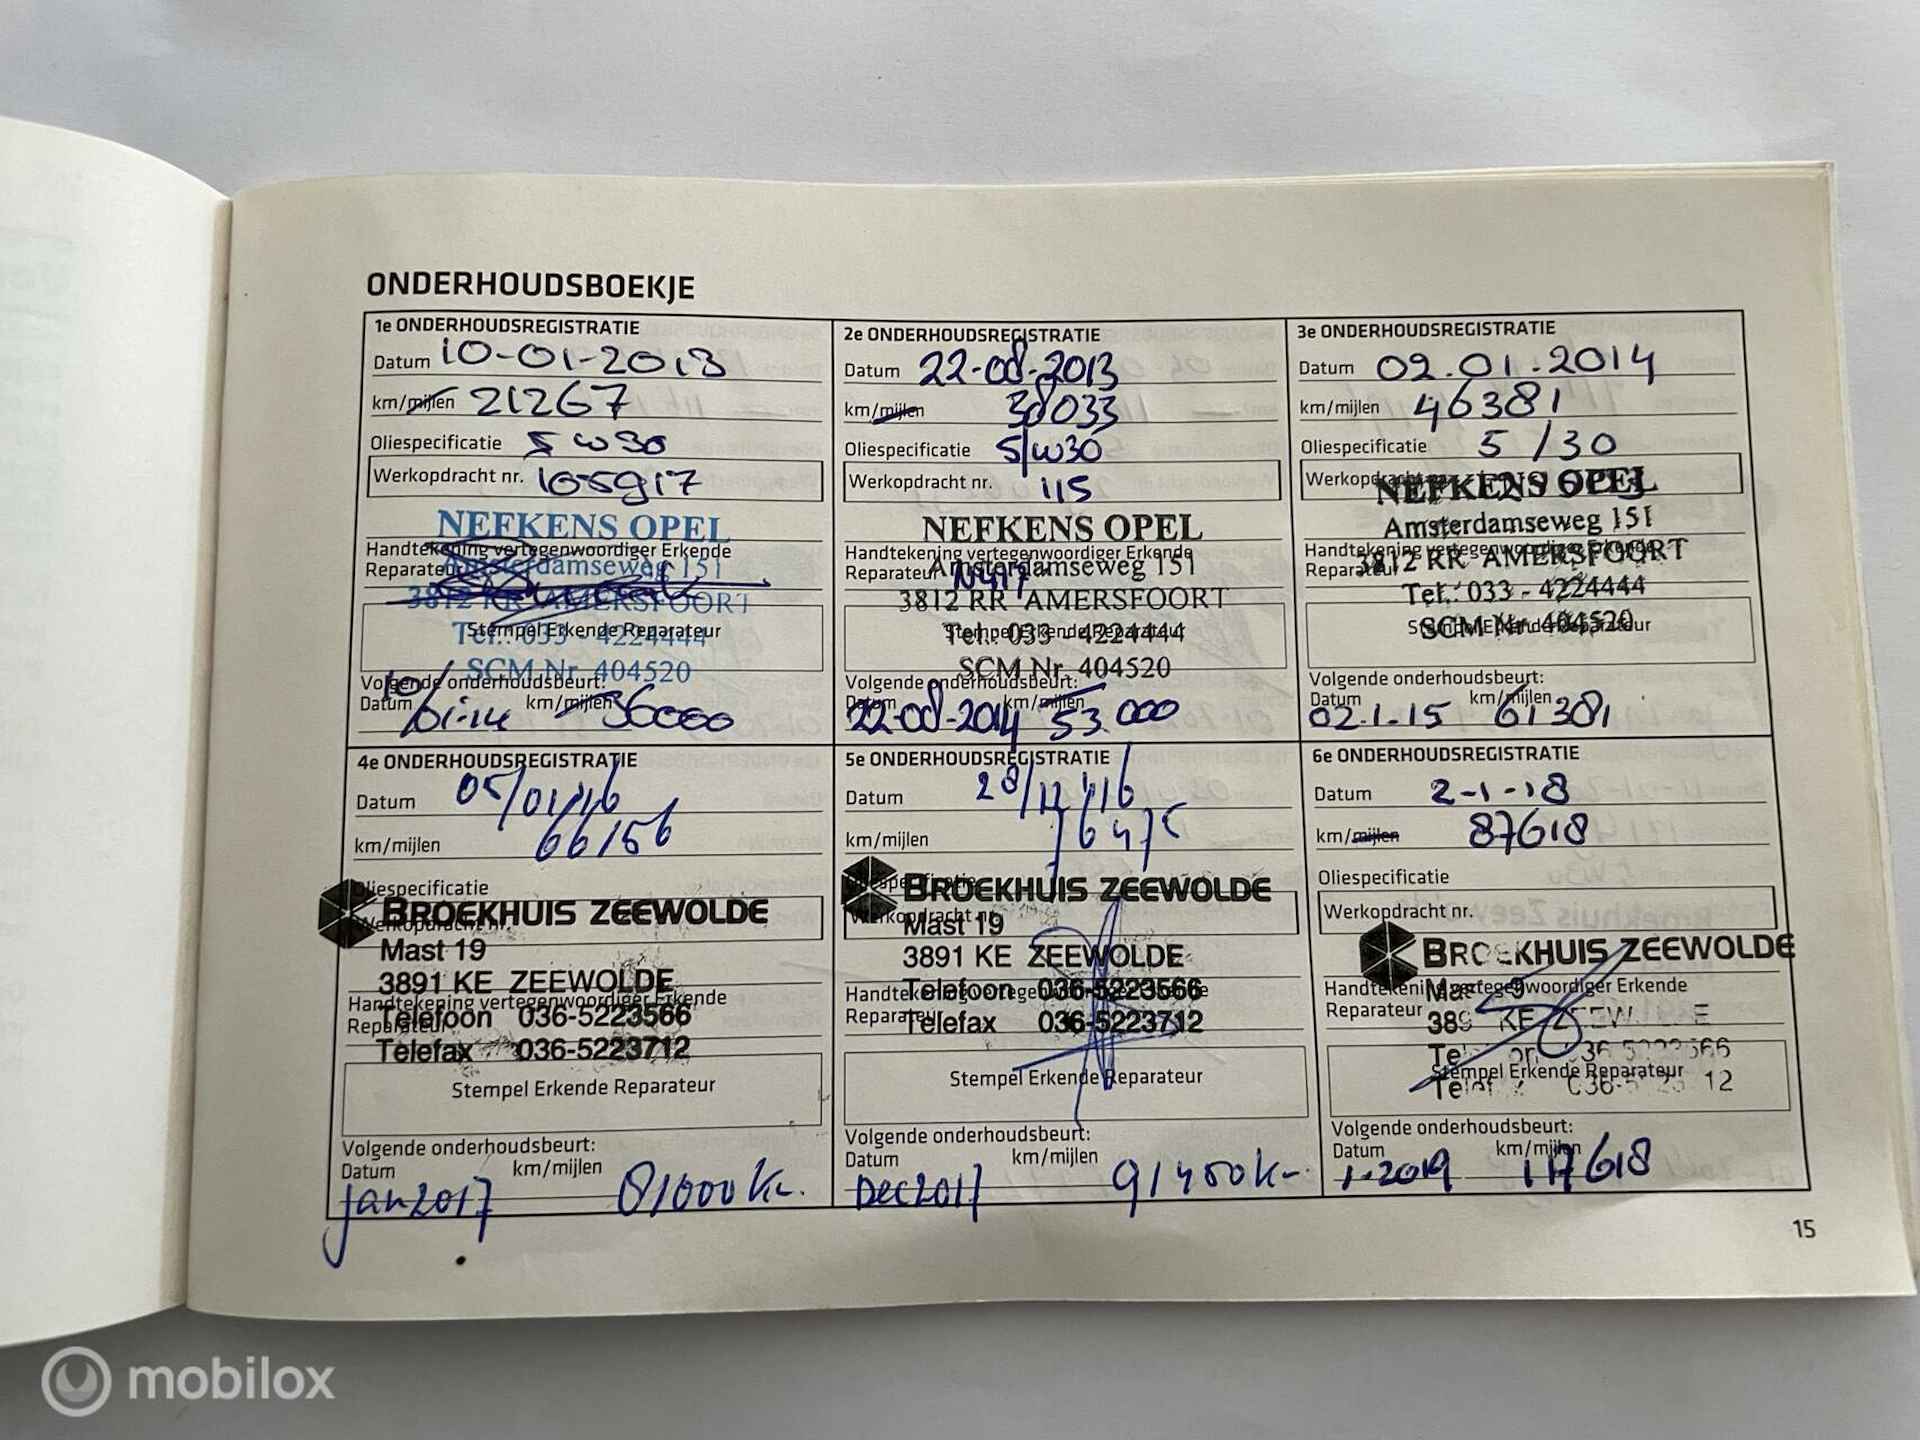 ONDERHOUDSBOEKJE
1e ONDERHOUDSREGISTRATIE
Datum 10-01-2013
km/mijlen 21267
Oliespecificatie 5W30
Werkopdracht nr. 105917
NEFKENS OPEL
Handtekening vertegenwoordiger Erkende
Reparateur
Amsterdamseweg 151
3812 RR AMERSFOORT
Stempel Erkende Reparateur
Tel.: 033 - 4224444
SCM Nr. 404520
Volgende onderhoudsbeurt:
Datum 10/01-14 km/mijlen 36000
2e ONDERHOUDSREGISTRATIE
Datum 22-08-2013
km/mijlen 38033
Oliespecificatie 5/W30
Werkopdracht nr. 115
NEFKENS OPEL
Handtekening vertegenwoordiger Erkende
Reparateur
Amsterdamseweg 151
3812 RR AMERSFOORT
Stempel Erkende Reparateur
Tel.: 033 - 4224444
SCM Nr. 404520
Volgende onderhoudsbeurt:
Datum 22-08-2014 km/mijlen 53.000
3e ONDERHOUDSREGISTRATIE
Datum 02.01.2014
km/mijlen 46381
Oliespecificatie 5/30
Werkopdracht
NEFKENS OPEL
Amsterdamseweg 151
Handtekening vertegenwoordiger Erkende
Reparateur
3812 RR AMERSFOORT
Tel.: 033 - 4224444
Stempel Erkende Reparateur
SCM Nr. 404520
Volgende onderhoudsbeurt:
Datum 02.1.15 km/mijlen 61381
4e ONDERHOUDSREGISTRATIE
Datum 05/01/16
km/mijlen 66156
Oliespecificatie
Werkopdracht nr.
BROEKHUIS ZEEWOLDE
Mast 19
3891 KE ZEEWOLDE
Handtekening vertegenwoordiger Erkende
Reparateur
Telefoon 036-5223566
Telefax 036-5223712
Stempel Erkende Reparateur
Volgende onderhoudsbeurt:
Datum km/mijlen
jan 2017 81000 Km.
5e ONDERHOUDSREGISTRATIE
Datum 28/12/16
km/mijlen 76475
Oliespecificatie
BROEKHUIS ZEEWOLDE
Werkopdracht nr.
Mast 19
3891 KE ZEEWOLDE
Handtekening vertegenwoordiger Erkende
Reparateur
Telefoon 036-5223566
Telefax 036-5223712
Stempel Erkende Reparateur
Volgende onderhoudsbeurt:
Datum km/mijlen
Dec 2017 91400 Km
6e ONDERHOUDSREGISTRATIE
Datum 2-1-18
km/mijlen 87618
Oliespecificatie
Werkopdracht nr.
BROEKHUIS ZEEWOLDE
Handtekening vertegenwoordiger Erkende
Reparateur
Stempel Erkende Reparateur
Volgende onderhoudsbeurt:
Datum km/mijlen
1-2019 117618
15
mobilox